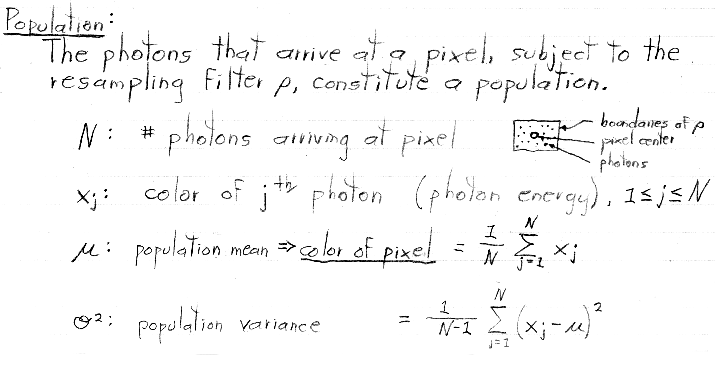 Population:
The photons that arrive at a pixel, subject to the
resampling filter ρ, constitute a population.
N: # photons arriving at pixel
boundaries of ρ
pixel center
photons
xj: color of jth photon (photon energy), 1≤j≤N
μ: population mean ⇒ color of pixel = 1/N ∑_{j=1}^{N} xj
σ²: population variance = 1/(N-1) ∑_{j=1}^{N} (xj-μ)²